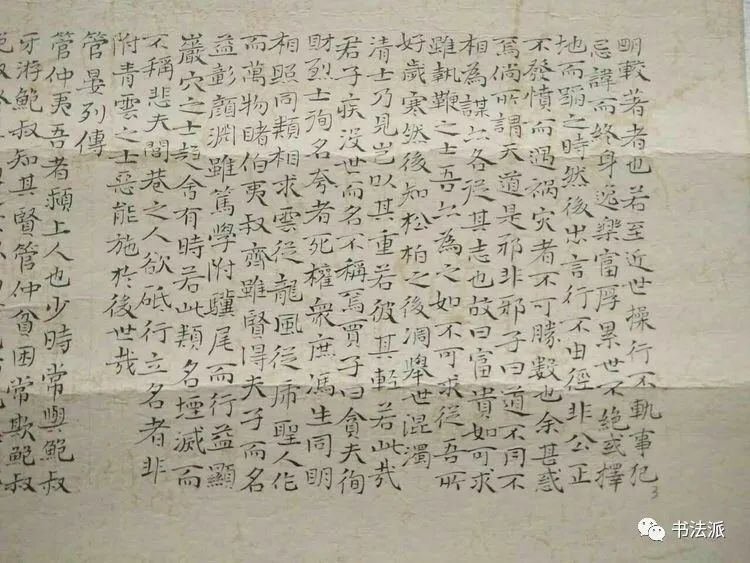 明較著者也若至近世操行不軌事犯
忌諱而終身逸樂富厚累世不絕或擇
地而蹈之時然後出言行不由徑非公正
不發憤而遇禍灾者不可勝數也余甚惑
焉倘所謂天道是邪非邪子曰道不同不
相為謀亦各從其志也故曰富貴如可求
雖執鞭之士吾亦為之如不可求從吾所
好歲寒然後知松柏之後凋舉世混濁
清士乃見豈以其重若彼其輕若此哉
君子疾沒世而名不稱焉賈子曰貪夫徇
財烈士殉名夸者死權衆庶馮生同明
相照同類相求雲從龍風從虎聖人作
而萬物睹伯夷叔齊雖賢得夫子而名
益彰顏淵雖篤學附驥尾而行益顯
巖穴之士趨舍有時若此類名堙滅而
不稱悲夫閭巷之人欲砥行立名者非
附青雲之士惡能施於後世哉
管晏列傳
管仲夷吾者潁上人也少時常與鮑叔
牙游鮑叔知其賢管仲貧困常欺鮑叔
3
书法派